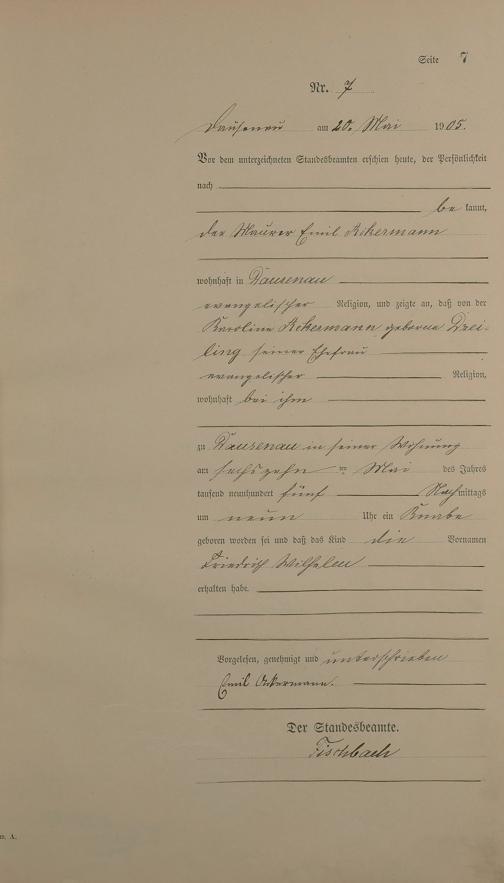 Seite 7
Nr. 7
Dausenau am 20. Mai 1905.
Vor dem unterzeichneten Standesbeamten erschien heute, der Persönlichkeit
nach
be kannt,
der Maurer Emil Ackermann
wohnhaft in Dausenau
evangelischer Religion, und zeigte an, daß von der
Karoline Ackermann geborne Drei-
ling seiner Ehefrau
evangelischer Religion,
wohnhaft bei ihm
zu Dausenau in seiner Wohnung
am sechszehn ten Mai des Jahres
tausend neunhundert fünf Nachmittags
um neun Uhr ein Knabe
geboren worden sei und daß das Kind die Vornamen
Friedrich Wilhelm
erhalten habe.
Vorgelesen, genehmigt und unterschrieben
Emil Ackermann.
Der Standesbeamte.
Fischbach
m. A.